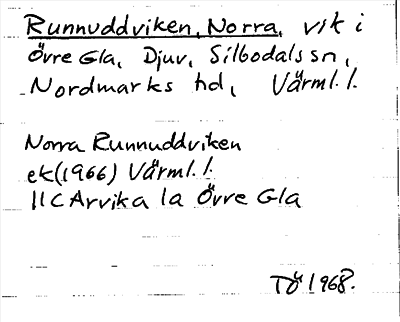 Runnuddviken, Norra, vik i
Övre Gla, Djuv, Silbodals sn,
Nordmarks hd, Värml. l.
Norra Runnuddviken
ek(1966) Värml. l.
11C Arvika 1a Övre Gla
TÖ 1968.